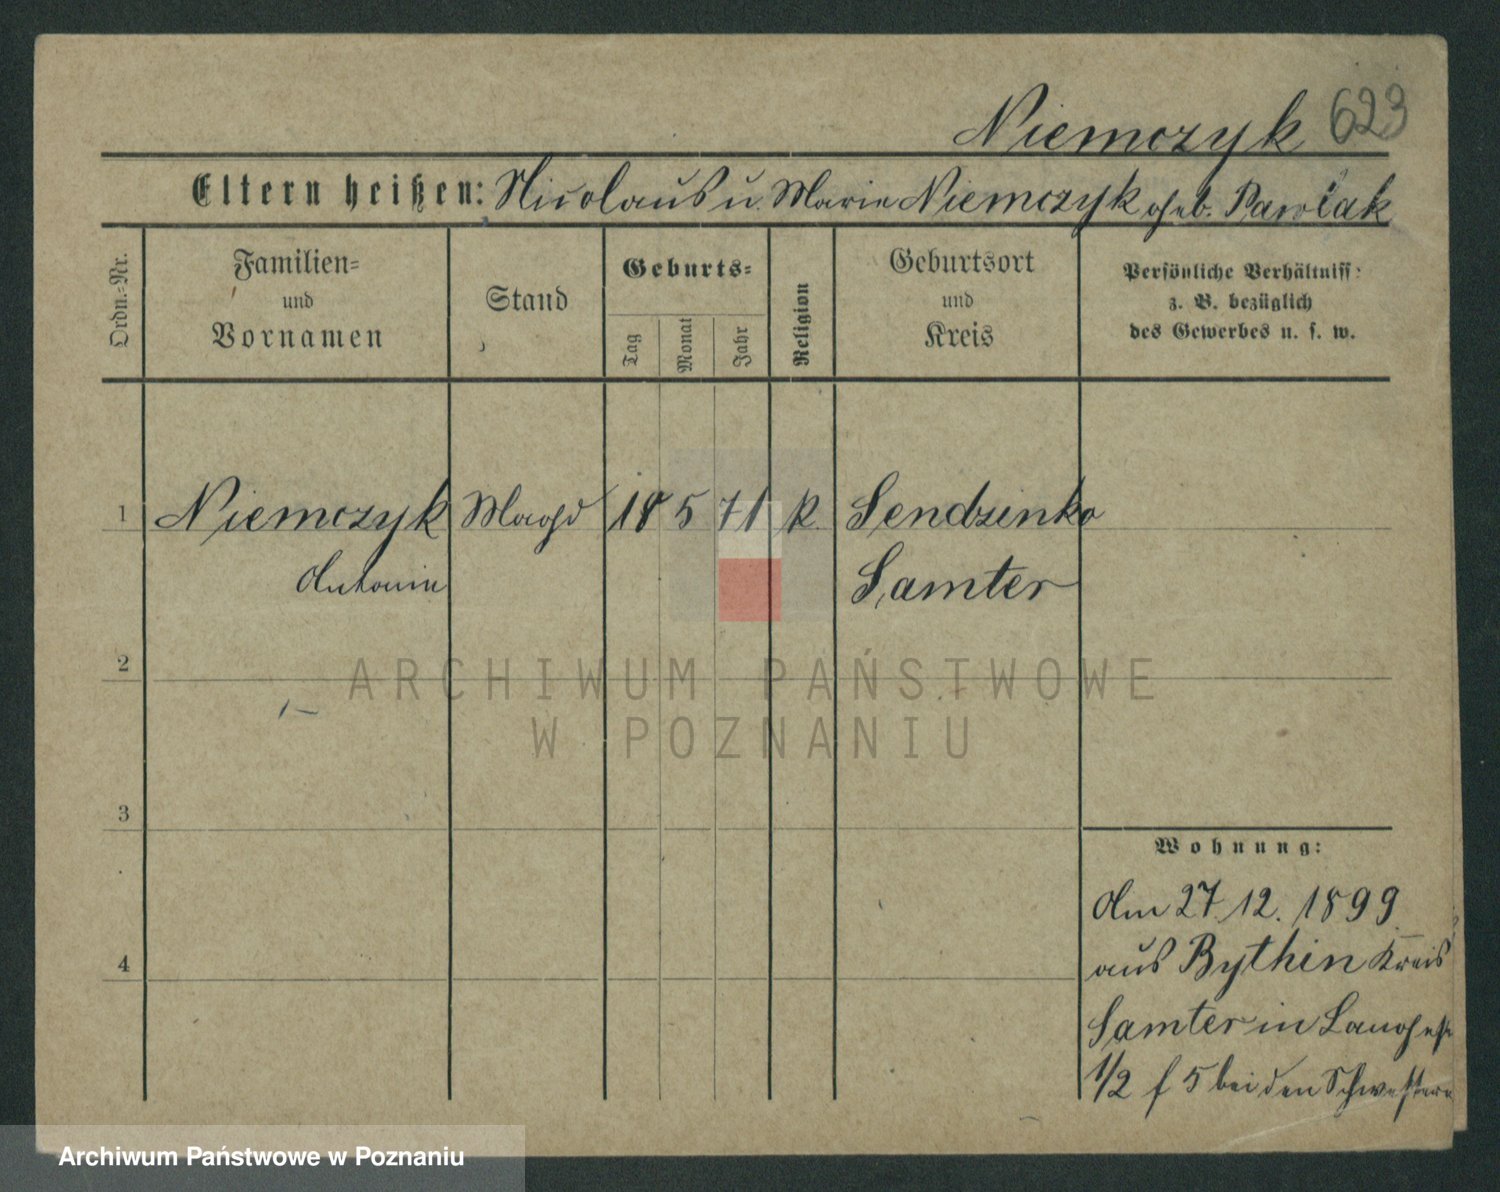 Niemczyk 623
Eltern heißen: Nicolaus u. Marie Niemczyk geb. Pawlak
Ordn.-Nr.
Familien-
und
Vornamen
Stand
Geburts-
Tag
Monat
Jahr
Religion
Geburtsort
und
Kreis
Persönliche Verhältniss:
z. B. bezüglich
des Gewerbes u. s. w.
1 Niemczyk Magd 18 5 71 k. Sendzinko
Antonie Samter
2
ARCHIWUM PAŃSTWOWE
W POZNANIU
3
Wohnung:
Am 27.12.1899
aus Bythin Kreis
4
Samter in Langestr
1/2 f 5 bei den Schwestern
Archiwum Państwowe w Poznaniu